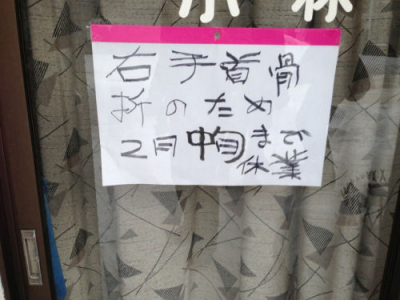 小林
右手首骨
折のため
2月中旬まで
休業